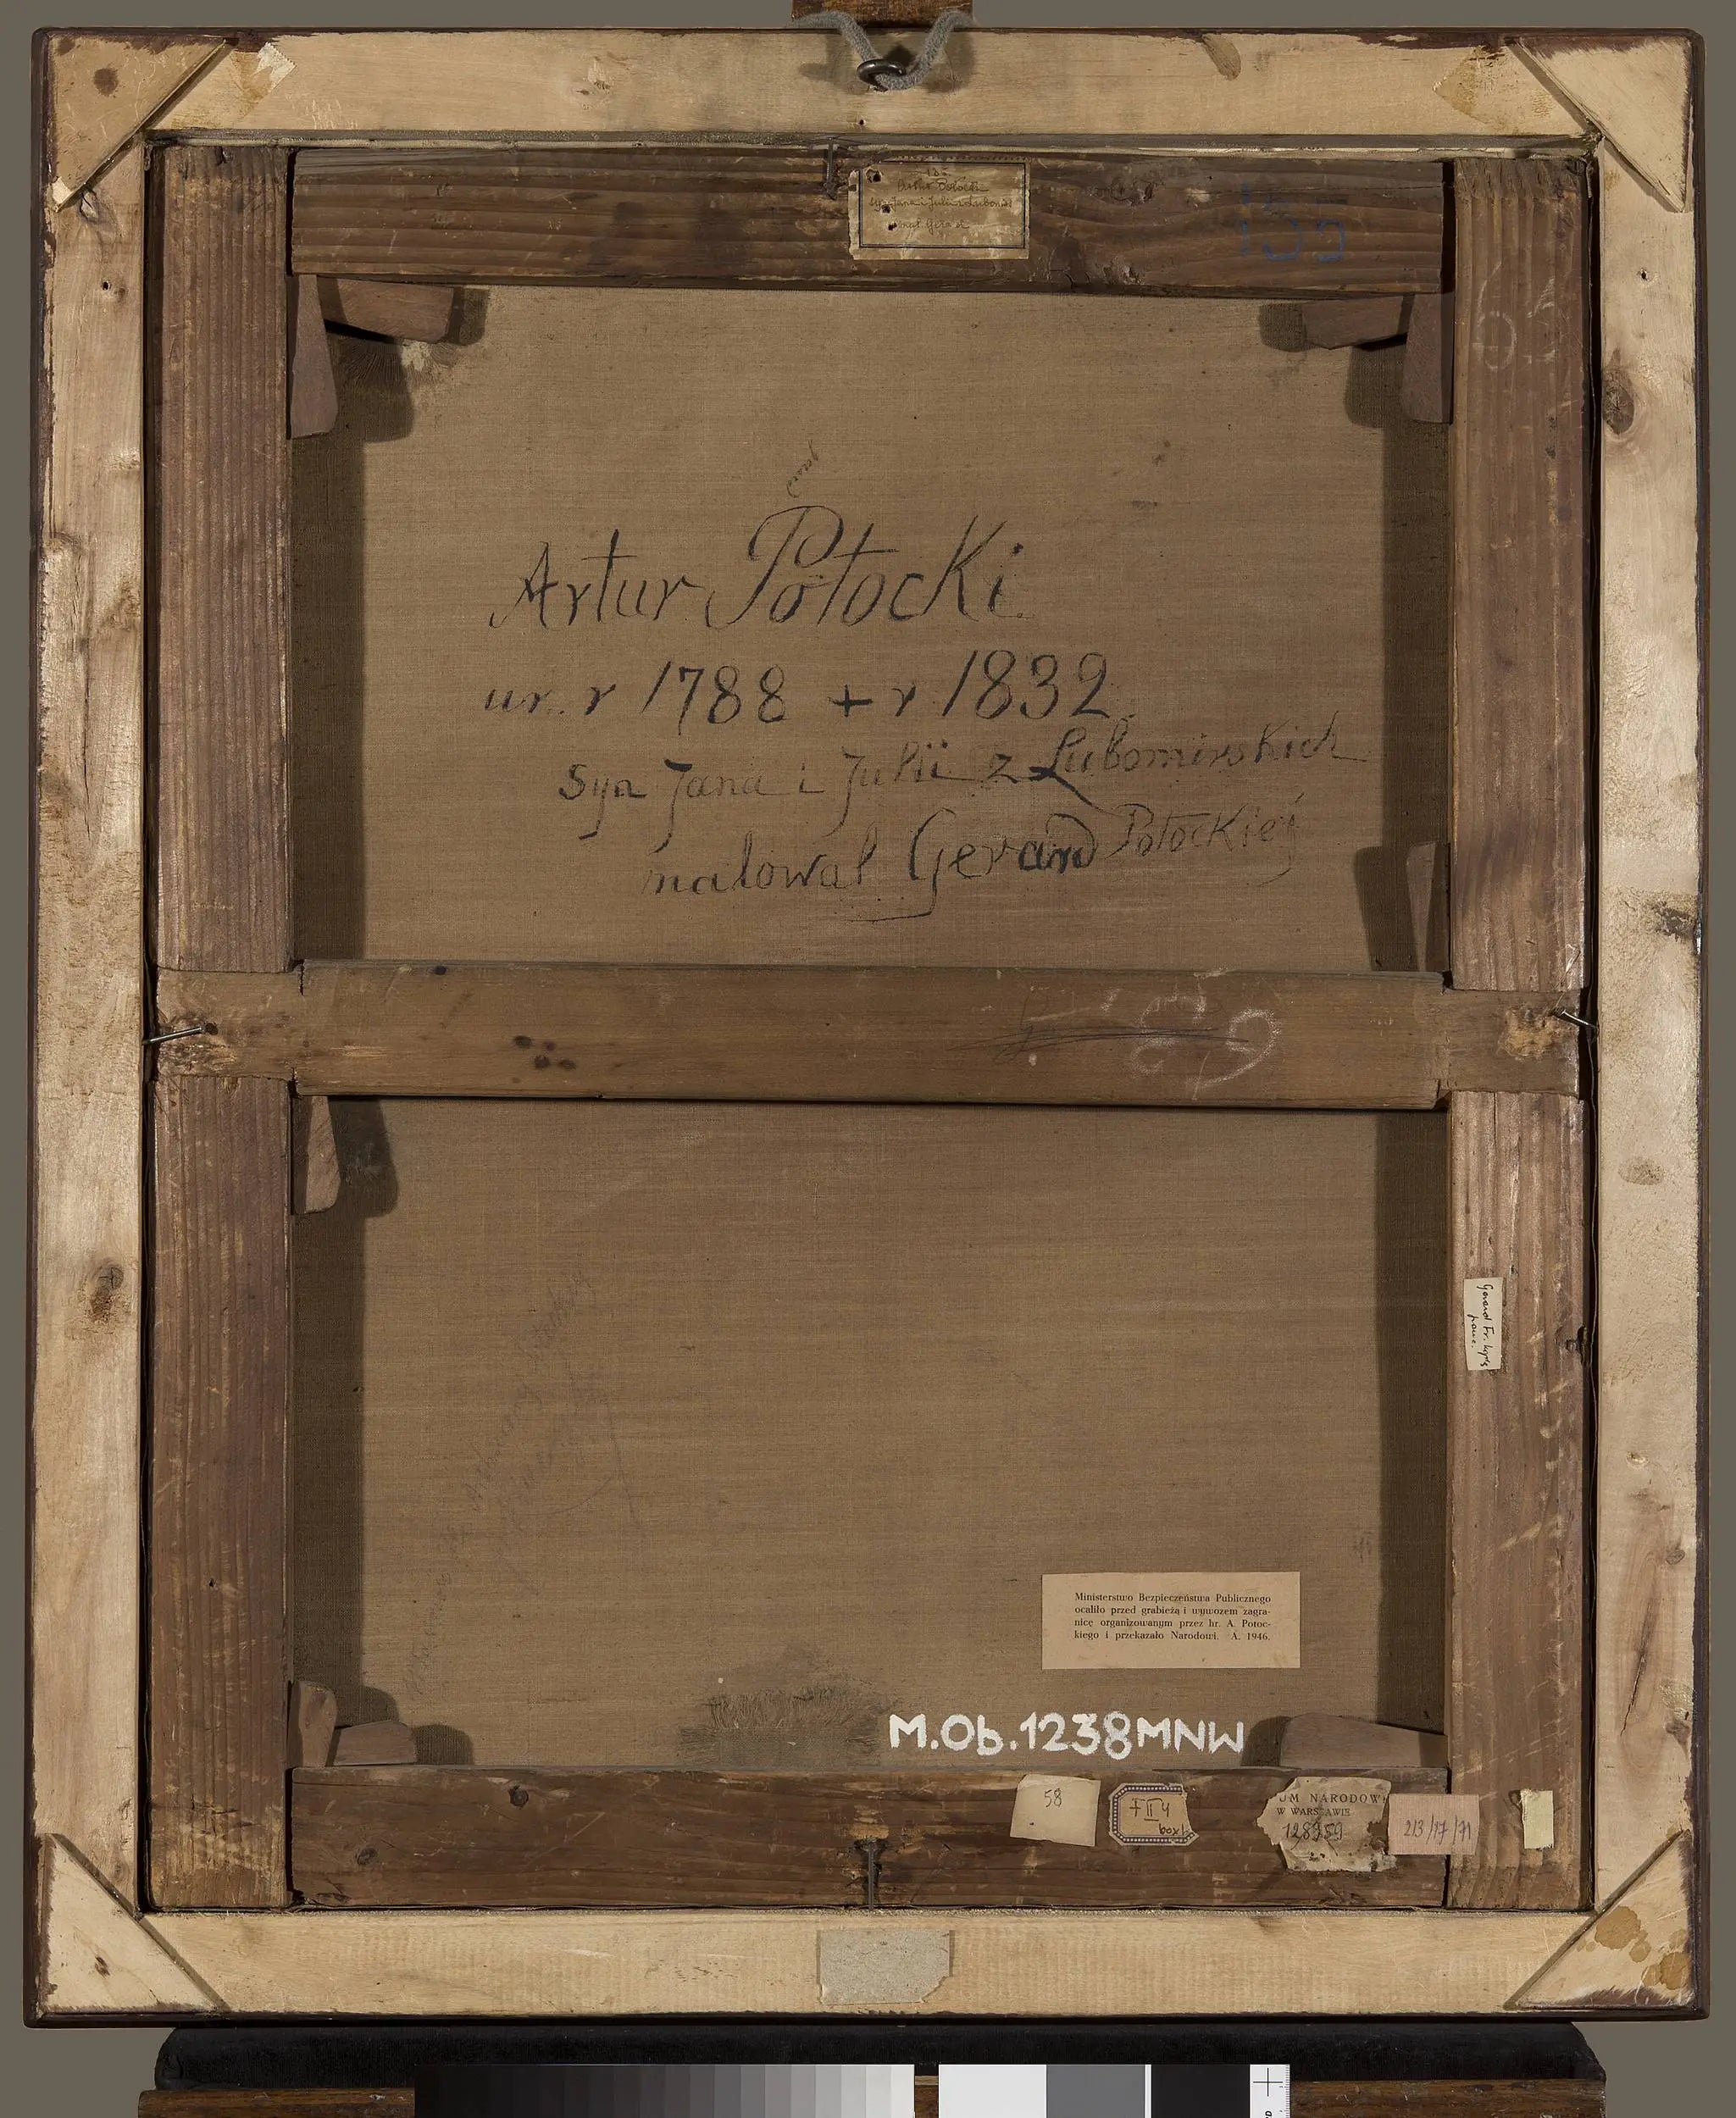 Artur Potocki
syn Jana i Julii z Lubomir
mal. Gerard
Artur Potocki
ur. r 1788 + r 1832
Syn Jana i Julii z Lubomirskich
Potockiej
malowal Gerard
Gerard Fr.
Ministerstwo Bezpieczeństwa Publicznego
ocaliło przed grabieżą i wywozem zagra-
nicę organizowanym przez hr. A. Potoc-
kiego i przekazało Narodowi. A. 1946.
M.Ob.1238MNW
58
F II 4
box1
UM NARODOW
W WARSZAWIE
128959
213/17/71